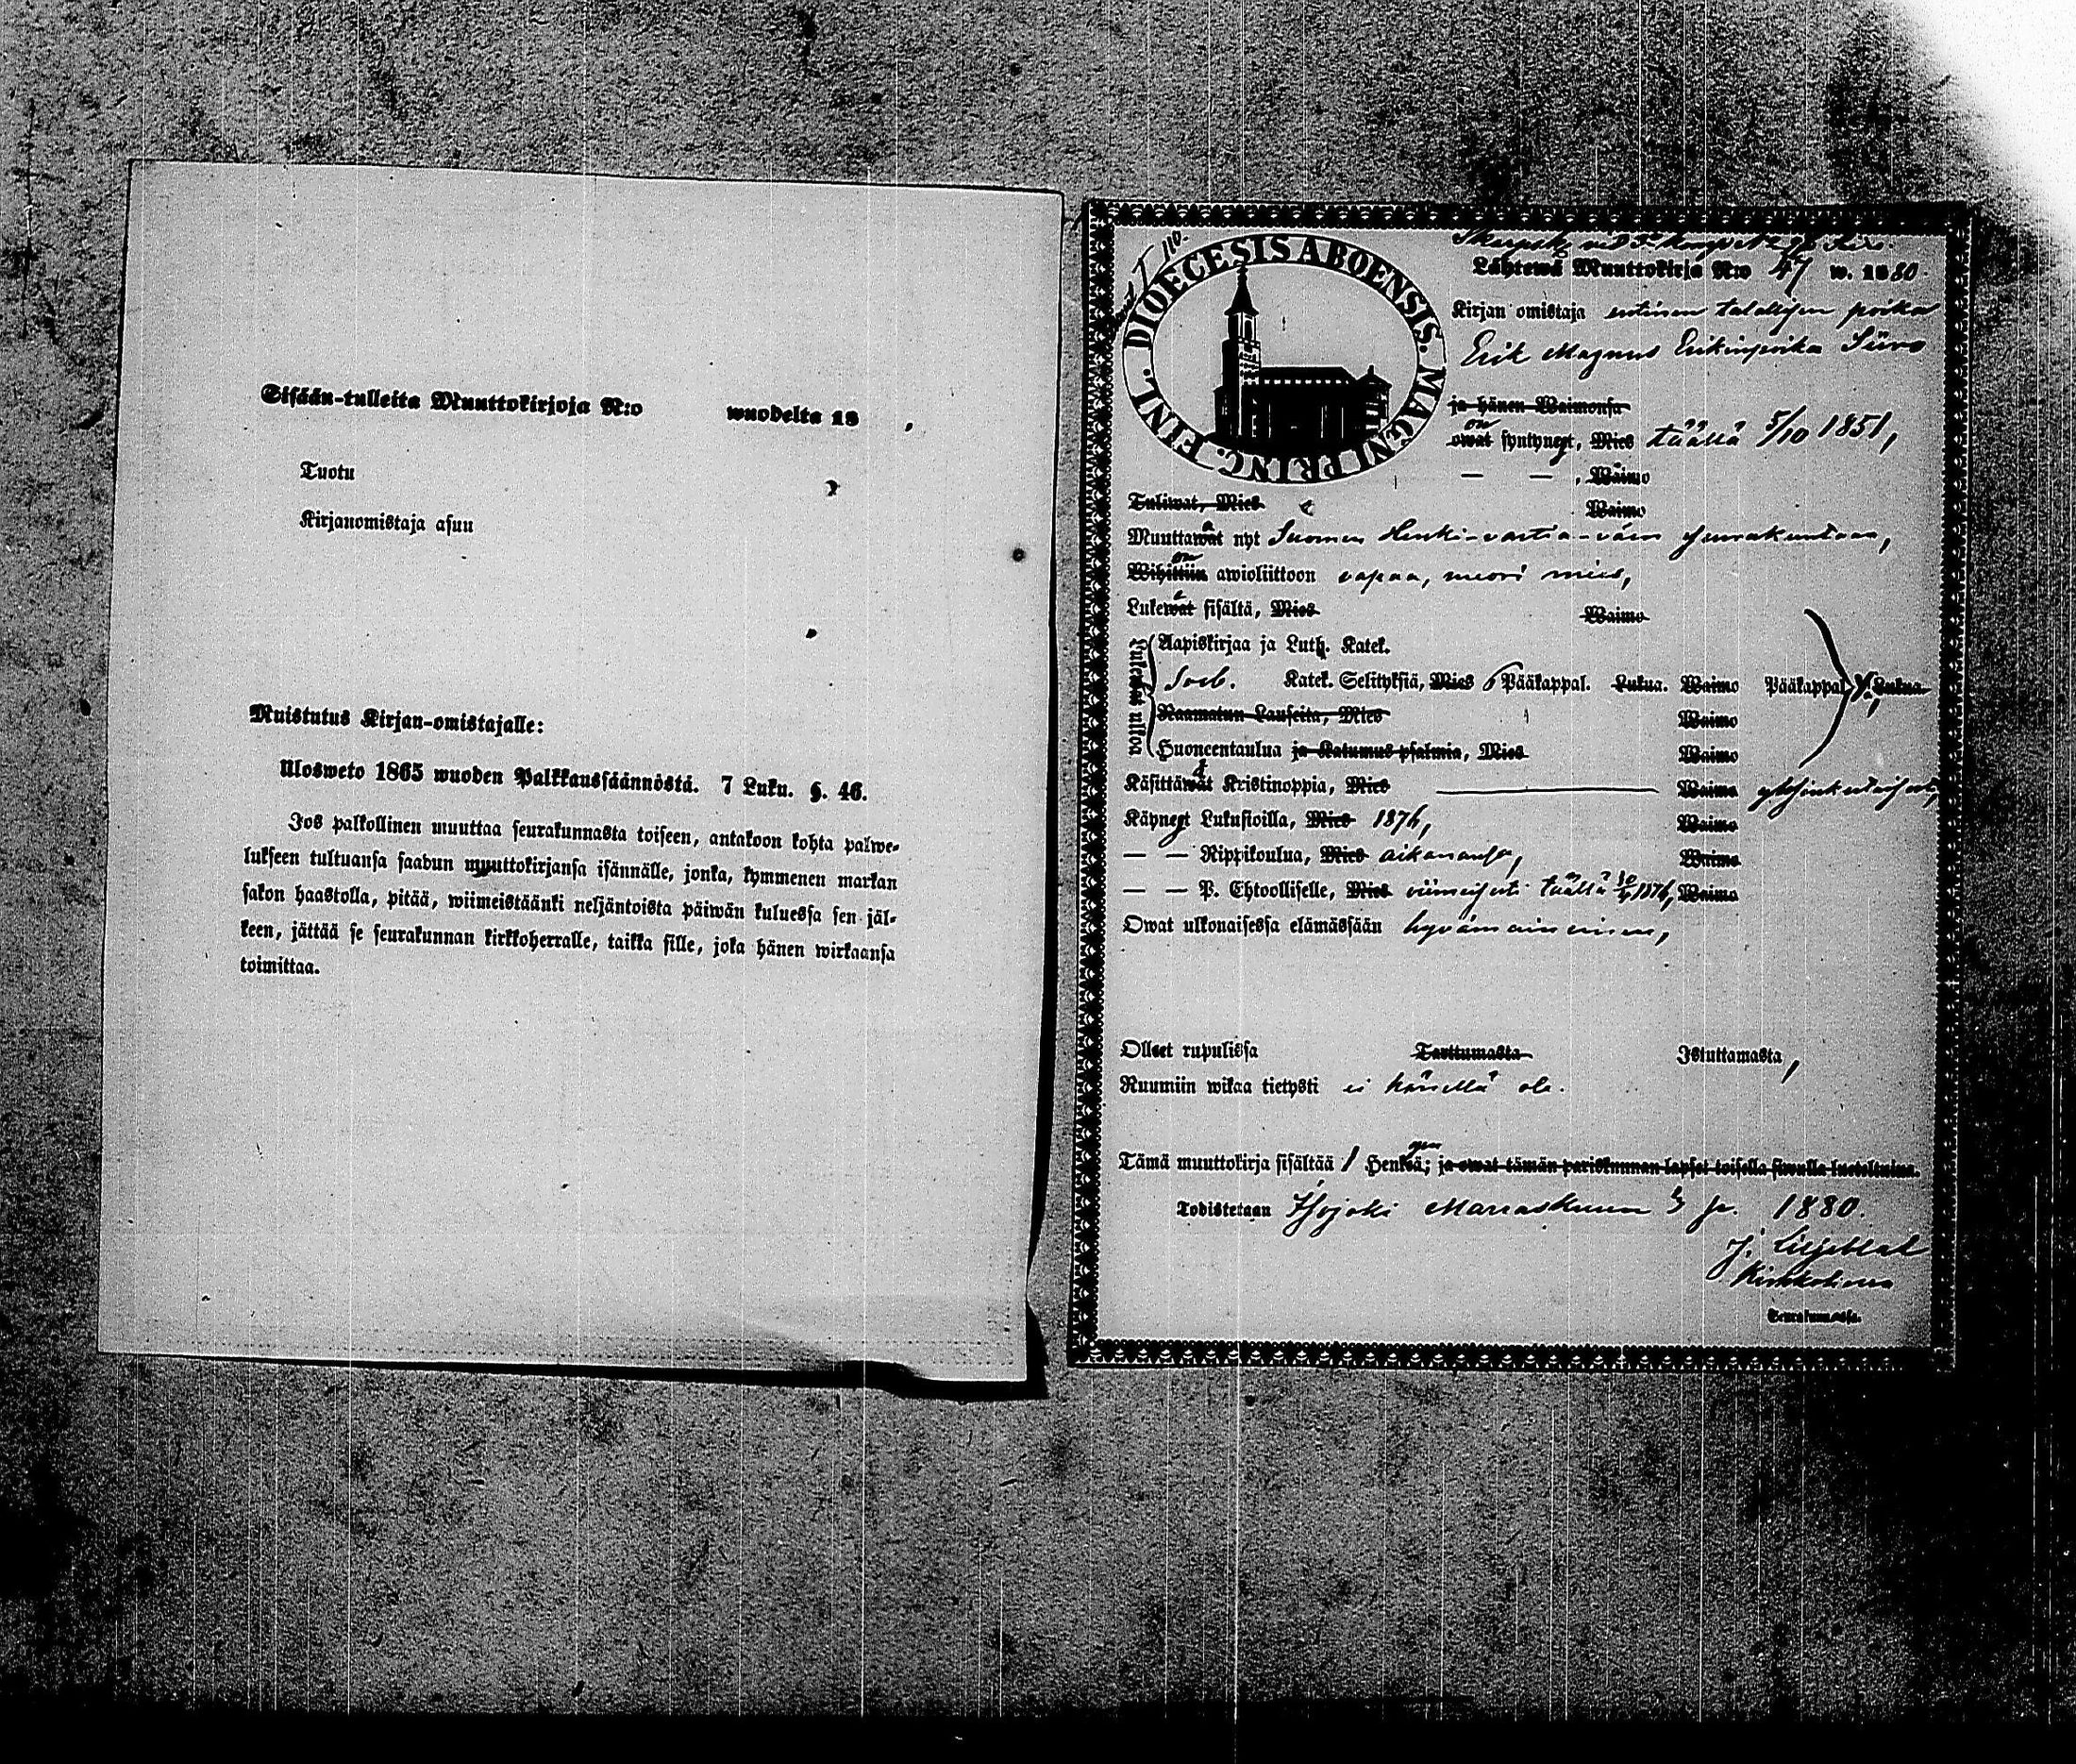 Sisään-tulleita Muuttokirjoja N:o wuodelta 18
Tuotu
Kirjanomistaja asuu
Muistutus Kirjan-omistajalle:
Ulosweto 1865 wuoden Palkkaussäännöstä. 7 Luku. §. 46.
Jos palkollinen muuttaa seurakunnasta toiseen, antakoon kohta palwe-
lukseen tultuansa saadun muuttokirjansa isännälle, jonka, kymmenen markan
sakon haastolla, pitää, wiimeistäänki neljäntoista päiwän kuluessa sen jäl-
keen, jättää se seurakunnan kirkkoherralle, taikka sille, joka hänen wirkaansa
toimittaa.
DIOECESIS ABOENSIS. MAGNI PRINC. FINL.
Lähtewä Muuttokirja N:o 47 w. 1880.
Kirjan omistaja entinen talollisen poika
Erik Magnus Erikinpoika Siiro
ja hänen Waimonsa
on
owat syntynyt, Mies täällä 5/10 1851,
— — , Waimo
Tuliwat, Mies Waimo
Muuttawat nyt Suomen Henki-vartia-väen seurakuntaan,
on
Wihittiin awioliittoon vapaa, nuori mies,
Lukewat sisältä, Mies Waimo
Lukewat ulkoa
Aapiskirjaa ja Luth. Katek.
Sveb. Katek. Selityksiä, Mies 6 Pääkappal. Lukua. Waimo Pääkappal. Lukua
Raamatun Lauseita, Mies Waimo
Huoneentaulua ja Katumus psalmia, Mies Waimo
Käsittäwät Kristinoppia, Mies Waimo yksinkertaisesti,
Käynyt Lukusioilla, Mies 1876, Waimo
— — Rippikoulua, Mies aikanansa, Waimo
— — P. Ehtoolliselle, Mies viimeisesti täällä 1876, Waimo
Owat ulkonaisessa elämässään hyvämaineinen,
Olleet rupulissa Tarttumasta Istuttamasta,
Ruumiin wikaa tietysti ei hänellä ole.
Tämä muuttokirja sisältää 1 Henkeä; ja owat tämän pariskunnan lapset toisella siwulla lueteltuina.
Todistetaan Isojoki Marraskuun 3 p. 1880.
J. Liljeblad
Kirkkoherra
Seurakunnassa.